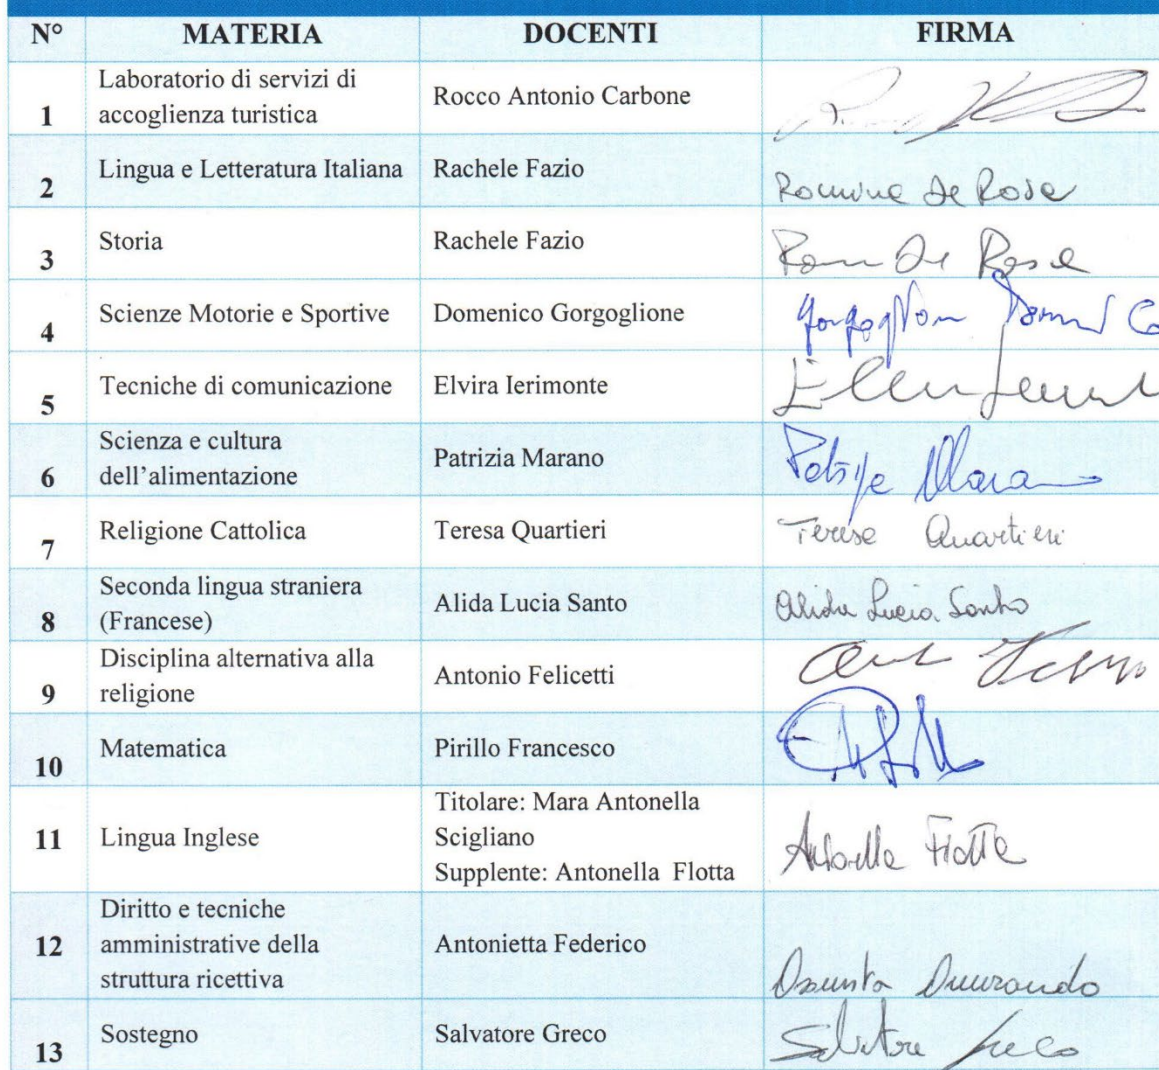 N° MATERIA DOCENTI FIRMA
1 Laboratorio di servizi di accoglienza turistica Rocco Antonio Carbone
2 Lingua e Letteratura Italiana Rachele Fazio Romina De Rose
3 Storia Rachele Fazio De Rose
4 Scienze Motorie e Sportive Domenico Gorgoglione
5 Tecniche di comunicazione Elvira Ierimonte
6 Scienza e cultura dell’alimentazione Patrizia Marano Marano
7 Religione Cattolica Teresa Quartieri Teresa Quartieri
8 Seconda lingua straniera (Francese) Alida Lucia Santo Alida Lucia Santo
9 Disciplina alternativa alla religione Antonio Felicetti
10 Matematica Pirillo Francesco
11 Lingua Inglese Titolare: Mara Antonella Scigliano
Supplente: Antonella Flotta Antonella Flotta
12 Diritto e tecniche amministrative della struttura ricettiva Antonietta Federico
13 Sostegno Salvatore Greco Salvatore Greco